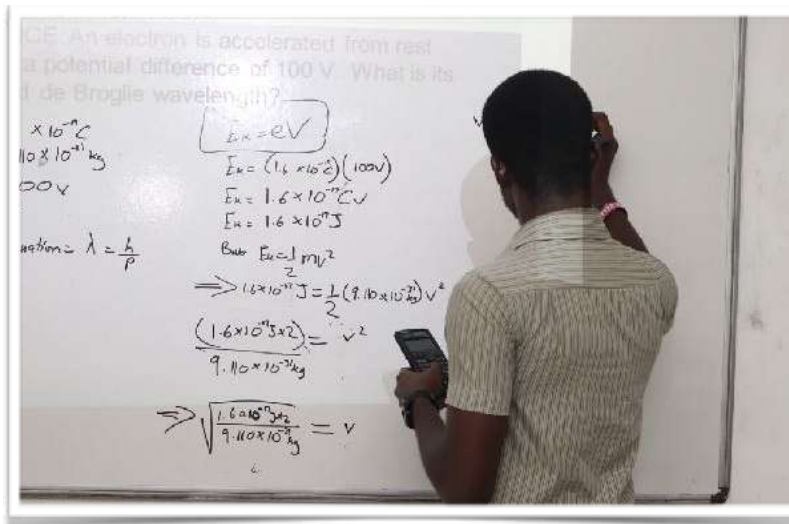 CE: An electron is accelerated from rest
a potential difference of 100 V. What is its
de Broglie wavelength?
× 10⁻¹⁹ C
110 × 10⁻³¹ kg
00 V
λ = h/p
Eₖ = eV
Eₖ = (1.6 × 10⁻¹⁹ C)(100V)
Eₖ = 1.6 × 10⁻¹⁷ CV
Eₖ = 1.6 × 10⁻¹⁷ J
But Eₖ = 1/2 mv²
⇒ 1.6 × 10⁻¹⁷ J = 1/2 (9.110 × 10⁻³¹ kg) v²
(1.6 × 10⁻¹⁷ J × 2) / 9.110 × 10⁻³¹ kg = v²
⇒ √(1.6 × 10⁻¹⁷ J × 2 / 9.110 × 10⁻³¹ kg) = v